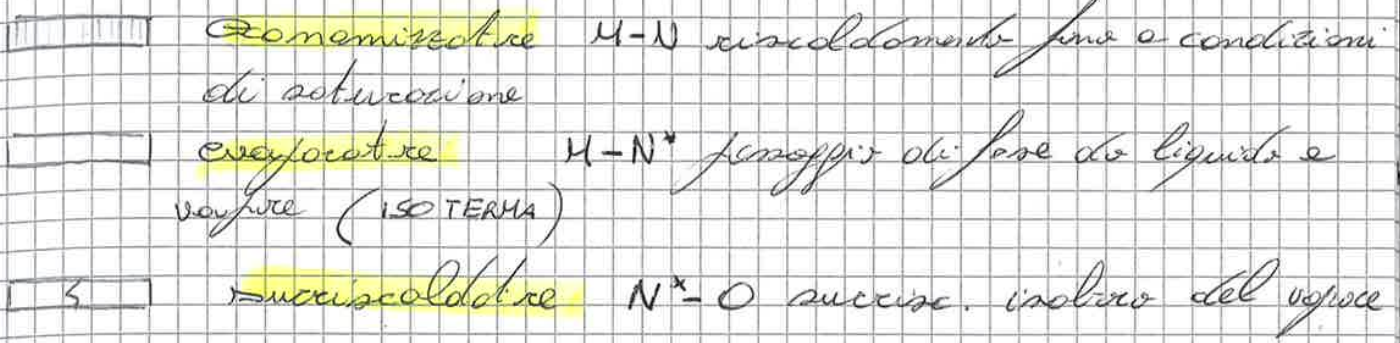 Economizzatore M-N riscaldamento fino a condizioni
di saturazione
evaporatore M-N* passaggio di fase da liquido a
vapore (ISOTERMA)
S surriscaldatore N*-O surrisc. isobaro del vapore